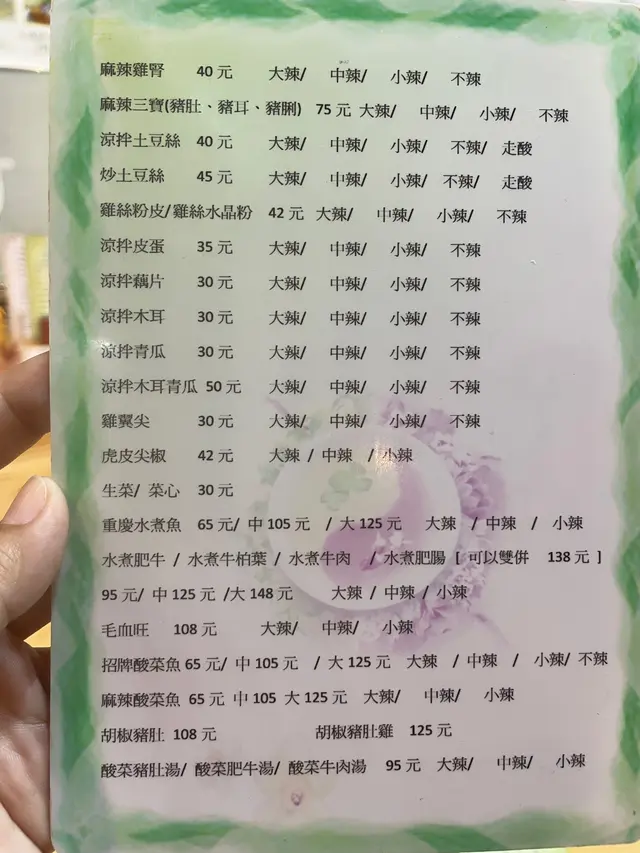 麻辣雞腎 40 元 大辣/ 中辣/ 小辣/ 不辣
麻辣三寶(豬肚、豬耳、豬脷) 75 元 大辣/ 中辣/ 小辣/ 不辣
涼拌土豆絲 40 元 大辣/ 中辣/ 小辣/ 不辣/ 走酸
炒土豆絲 45 元 大辣/ 中辣/ 小辣/ 不辣/ 走酸
雞絲粉皮/雞絲水晶粉 42 元 大辣/ 中辣/ 小辣/ 不辣
涼拌皮蛋 35 元 大辣/ 中辣/ 小辣/ 不辣
涼拌藕片 30 元 大辣/ 中辣/ 小辣/ 不辣
涼拌木耳 30 元 大辣/ 中辣/ 小辣/ 不辣
涼拌青瓜 30 元 大辣/ 中辣/ 小辣/ 不辣
涼拌木耳青瓜 50 元 大辣/ 中辣/ 小辣/ 不辣
雞翼尖 30 元 大辣/ 中辣/ 小辣/ 不辣
虎皮尖椒 42 元 大辣 / 中辣 / 小辣
生菜/ 菜心 30 元
重慶水煮魚 65 元/ 中 105 元 / 大 125 元 大辣 / 中辣 / 小辣
水煮肥牛 / 水煮牛柏葉 / 水煮牛肉 / 水煮肥腸 [ 可以雙併 138 元 ]
95 元/ 中 125 元 /大 148 元 大辣 / 中辣 / 小辣
毛血旺 108 元 大辣/ 中辣/ 小辣
招牌酸菜魚 65 元/ 中 105 元 / 大 125 元 大辣 / 中辣 / 小辣/ 不辣
麻辣酸菜魚 65 元 中 105 大 125 元 大辣/ 中辣/ 小辣
胡椒豬肚 108 元 胡椒豬肚雞 125 元
酸菜豬肚湯/ 酸菜肥牛湯/ 酸菜牛肉湯 95 元 大辣/ 中辣/ 小辣